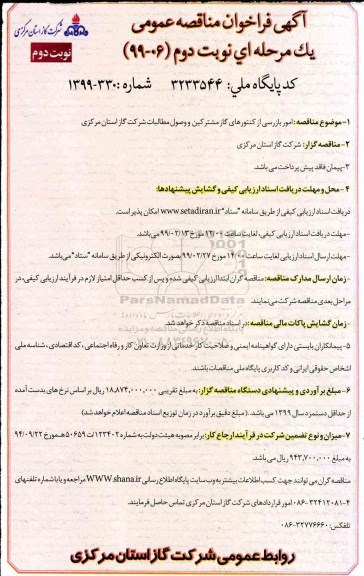 آگهی فراخوان مناقصه عمومی
یك مرحله اي نوبت دوم (۰۶-۹۹)
شرکت گاز استان مرکزی
نوبت دوم
کد پایگاه ملي: ۳۲۳۳۵۴۴ شماره: ۳۳۰-۱۳۹۹
۱-موضوع مناقصه: امور بازرسی از کنتورهای گاز مشترکین و وصول مطالبات شرکت گاز استان مرکزی
۲- مناقصه گزار: شرکت گاز استان مرکزی
۳-پیمان فاقد پیش پرداخت می باشد.
۴- محل و مهلت دریافت اسناد ارزیابی کیفی و گشایش پیشنهادها:
دریافت اسناد ارزیابی کیفی از طریق سامانه "ستاد" www.setadiran.ir امکان پذیر است.
-مهلت دریافت اسناد ارزیابی کیفی، لغایت ساعت ۱۲/۰۰ مورخ ۹۹/۰۲/۱۳ می باشد.
-مهلت ارسال اسناد ارزیابی لغایت ساعت ۱۴:۰۰ مورخ ۹۹/۰۲/۲۷ بصورت الکترونیکی از طریق سامانه "ستاد" می باشد.
-زمان ارسال مدارک مناقصه: مناقصه گران ابتدا ارزیابی کیفی شده و پس از کسب حداقل امتیاز لازم در فرآیند ارزیابی کیفی، در
مراحل بعدی مناقصه شرکت می نمایند.
-زمان گشایش پاکات مالی مناقصه: در اسناد مناقصه ذکر خواهد شد.
۵- پیمانکاران بایستی دارای گواهینامه ایمنی و صلاحیت کار خدماتی از وزارت تعاون کار و رفاه اجتماعی، کد اقتصادی، شناسه ملی
اشخاص حقوقی ایرانی و کد کاربری پایگاه ملی مناقصات باشند.
۶- مبلغ برآوردی و پیشنهادی دستگاه مناقصه گزار: به مبلغ تقریبی ۱۸,۸۷۴,۰۰۰,۰۰۰ ریال بر اساس نرخ های بدست آمده
از حداقل دستمزد سال ۱۳۹۹ می باشد. (مبلغ دقیق برآورد در زمان توزیع اسناد مناقصه اعلام خواهد شد)
۷-میزان و نوع تضمین شرکت در فرآیند ارجاع کار: برابر مصوبه هیئت دولت به شماره ۱۲۳۴۰۲/ت۵۰۶۵۹هـ مورخ ۹۴/۰۹/۲۲
به مبلغ ۹۴۳,۷۰۰,۰۰۰ ریال می باشد.
مناقصه گران می توانند جهت کسب اطلاعات بیشتر به وب سایت پایگاه اطلاع رسانی WWW.shana.ir مراجعه و یا با شماره تلفنهای
۴-۳۲۴۱۲۰۸۱-۰۸۶ امور قراردادهای شرکت گاز استان مرکزی تماس حاصل فرمایند.
تلفکس: ۳۲۷۷۶۶۶۰-۰۸۶
روابط عمومی شرکت گاز استان مرکزی
ParsNamadData